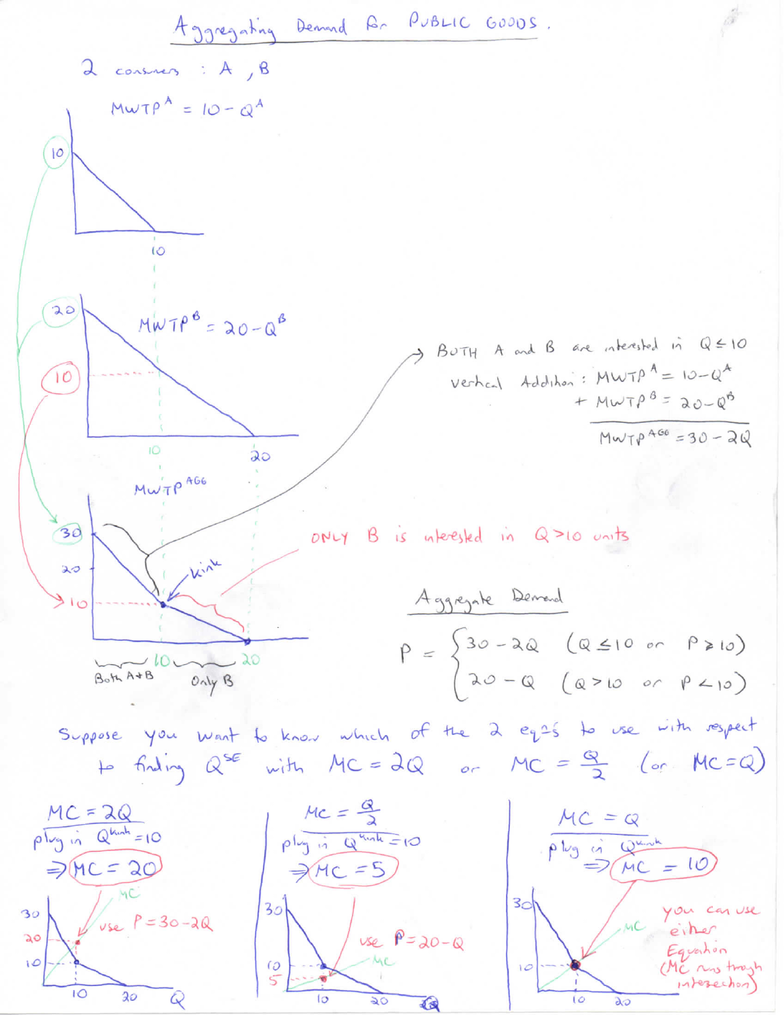 Aggregating Demand for PUBLIC GOODS.
2 consumers : A , B
MWTP^A = 10 - Q^A
10
10
20
MWTP^B = 20 - Q^B
10
10
20
BOTH A and B are interested in Q ≤ 10
Vertical Addition: MWTP^A = 10 - Q^A
+ MWTP^B = 20 - Q^B
MWTP^AGG = 30 - 2Q
MWTP^AGG
30
20
10
kink
ONLY B is interested in Q > 10 units
10
20
Both A+B
Only B
Aggregate Demand
P = { 30 - 2Q (Q ≤ 10 or P ≥ 10)
20 - Q (Q > 10 or P < 10)
Suppose you want to know which of the 2 eqns to use with respect
to finding Q^SE with MC = 2Q or MC = Q/2 (or MC = Q)
MC = 2Q
plug in Q^kink = 10
⇒ MC = 20
MC
30
20
10
use P = 30 - 2Q
10
20
Q
MC = Q/2
plug in Q^kink = 10
⇒ MC = 5
30
use P = 20 - Q
MC
10
5
10
20
Q
MC = Q
plug in Q^kink
⇒ MC = 10
30
MC
10
10
20
you can use
either
Equation
(MC runs through
intersection)